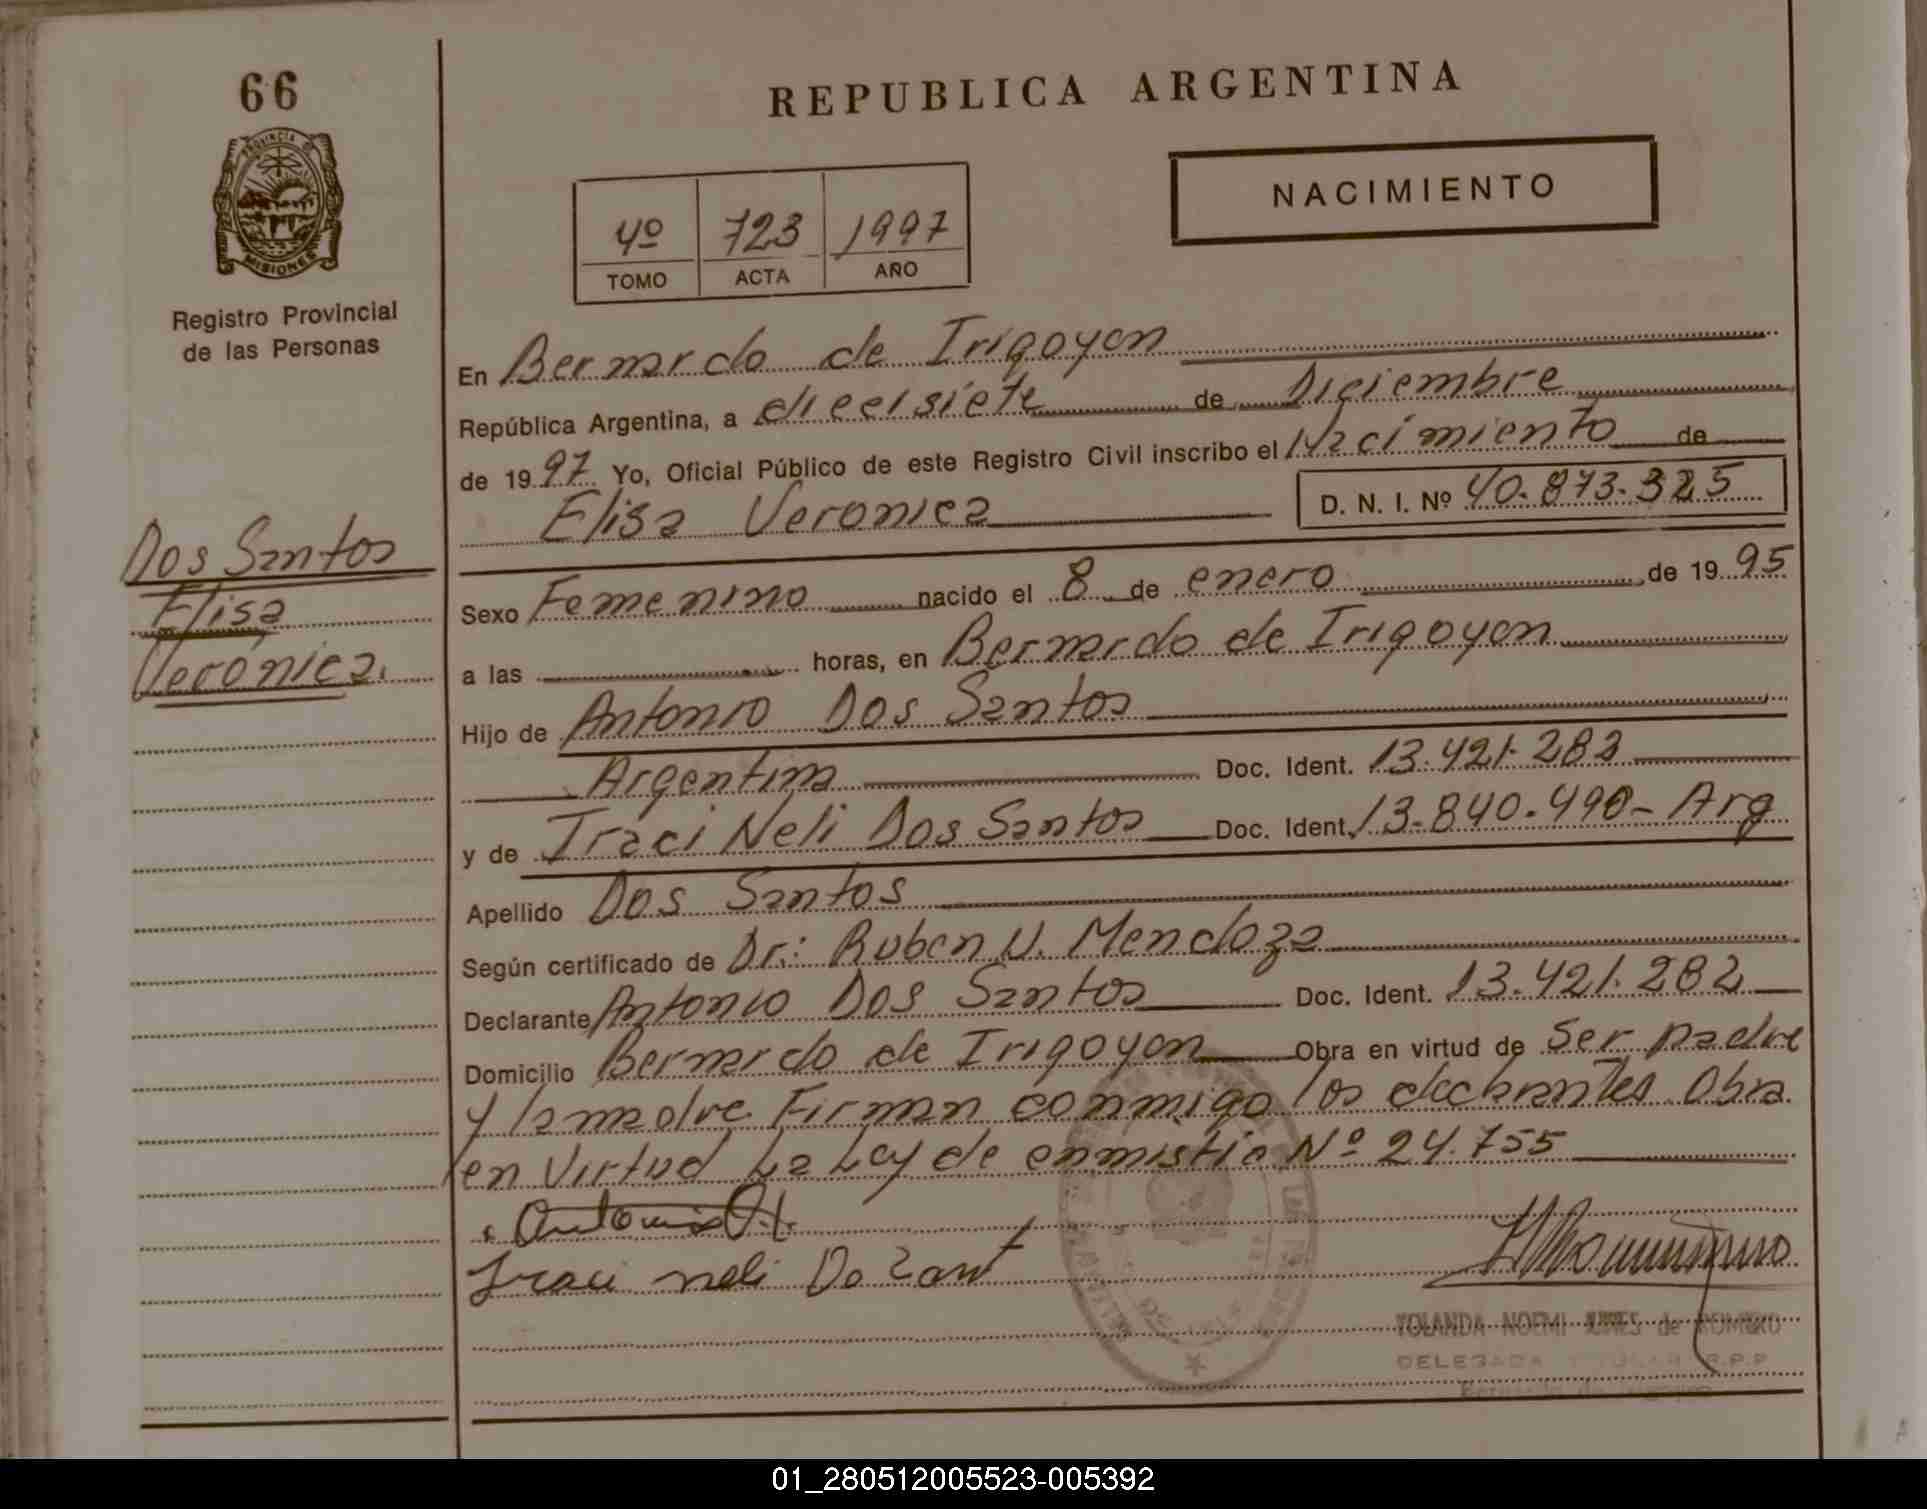 66
REPUBLICA ARGENTINA
PROVINCIA DE
MISIONES
Registro Provincial
de las Personas
4º 723 1997
TOMO ACTA AÑO
NACIMIENTO
En Bernardo de Irigoyen
República Argentina, a diecisiete de Diciembre
de 1997 Yo, Oficial Público de este Registro Civil inscribo el Nacimiento de
Elisa Veronica D. N. I. Nº 40.873.325
Dos Santos
Elisa
Verónica.
Sexo Femenino nacido el 8 de enero de 1995
a las horas, en Bernardo de Irigoyen
Hijo de Antonio Dos Santos
Argentina Doc. Ident. 13.421.282
y de Iraci Neli Dos Santos Doc. Ident. 13.840.490- Arg
Apellido Dos Santos
Según certificado de Dr.: Ruben U. Mendoza
Declarante Antonio Dos Santos Doc. Ident. 13.421.282
Domicilio Bernardo de Irigoyen Obra en virtud de Ser padre
y la madre. Firman conmigo los declarantes. Obra
en Virtud La Ley de enmistia Nº 24.755
Iraci neli Do
YOLANDA NOEMI de ROMERO
DELEGADA TITULAR R.P.P
Bernardo de Irigoyen
01_280512005523-005392